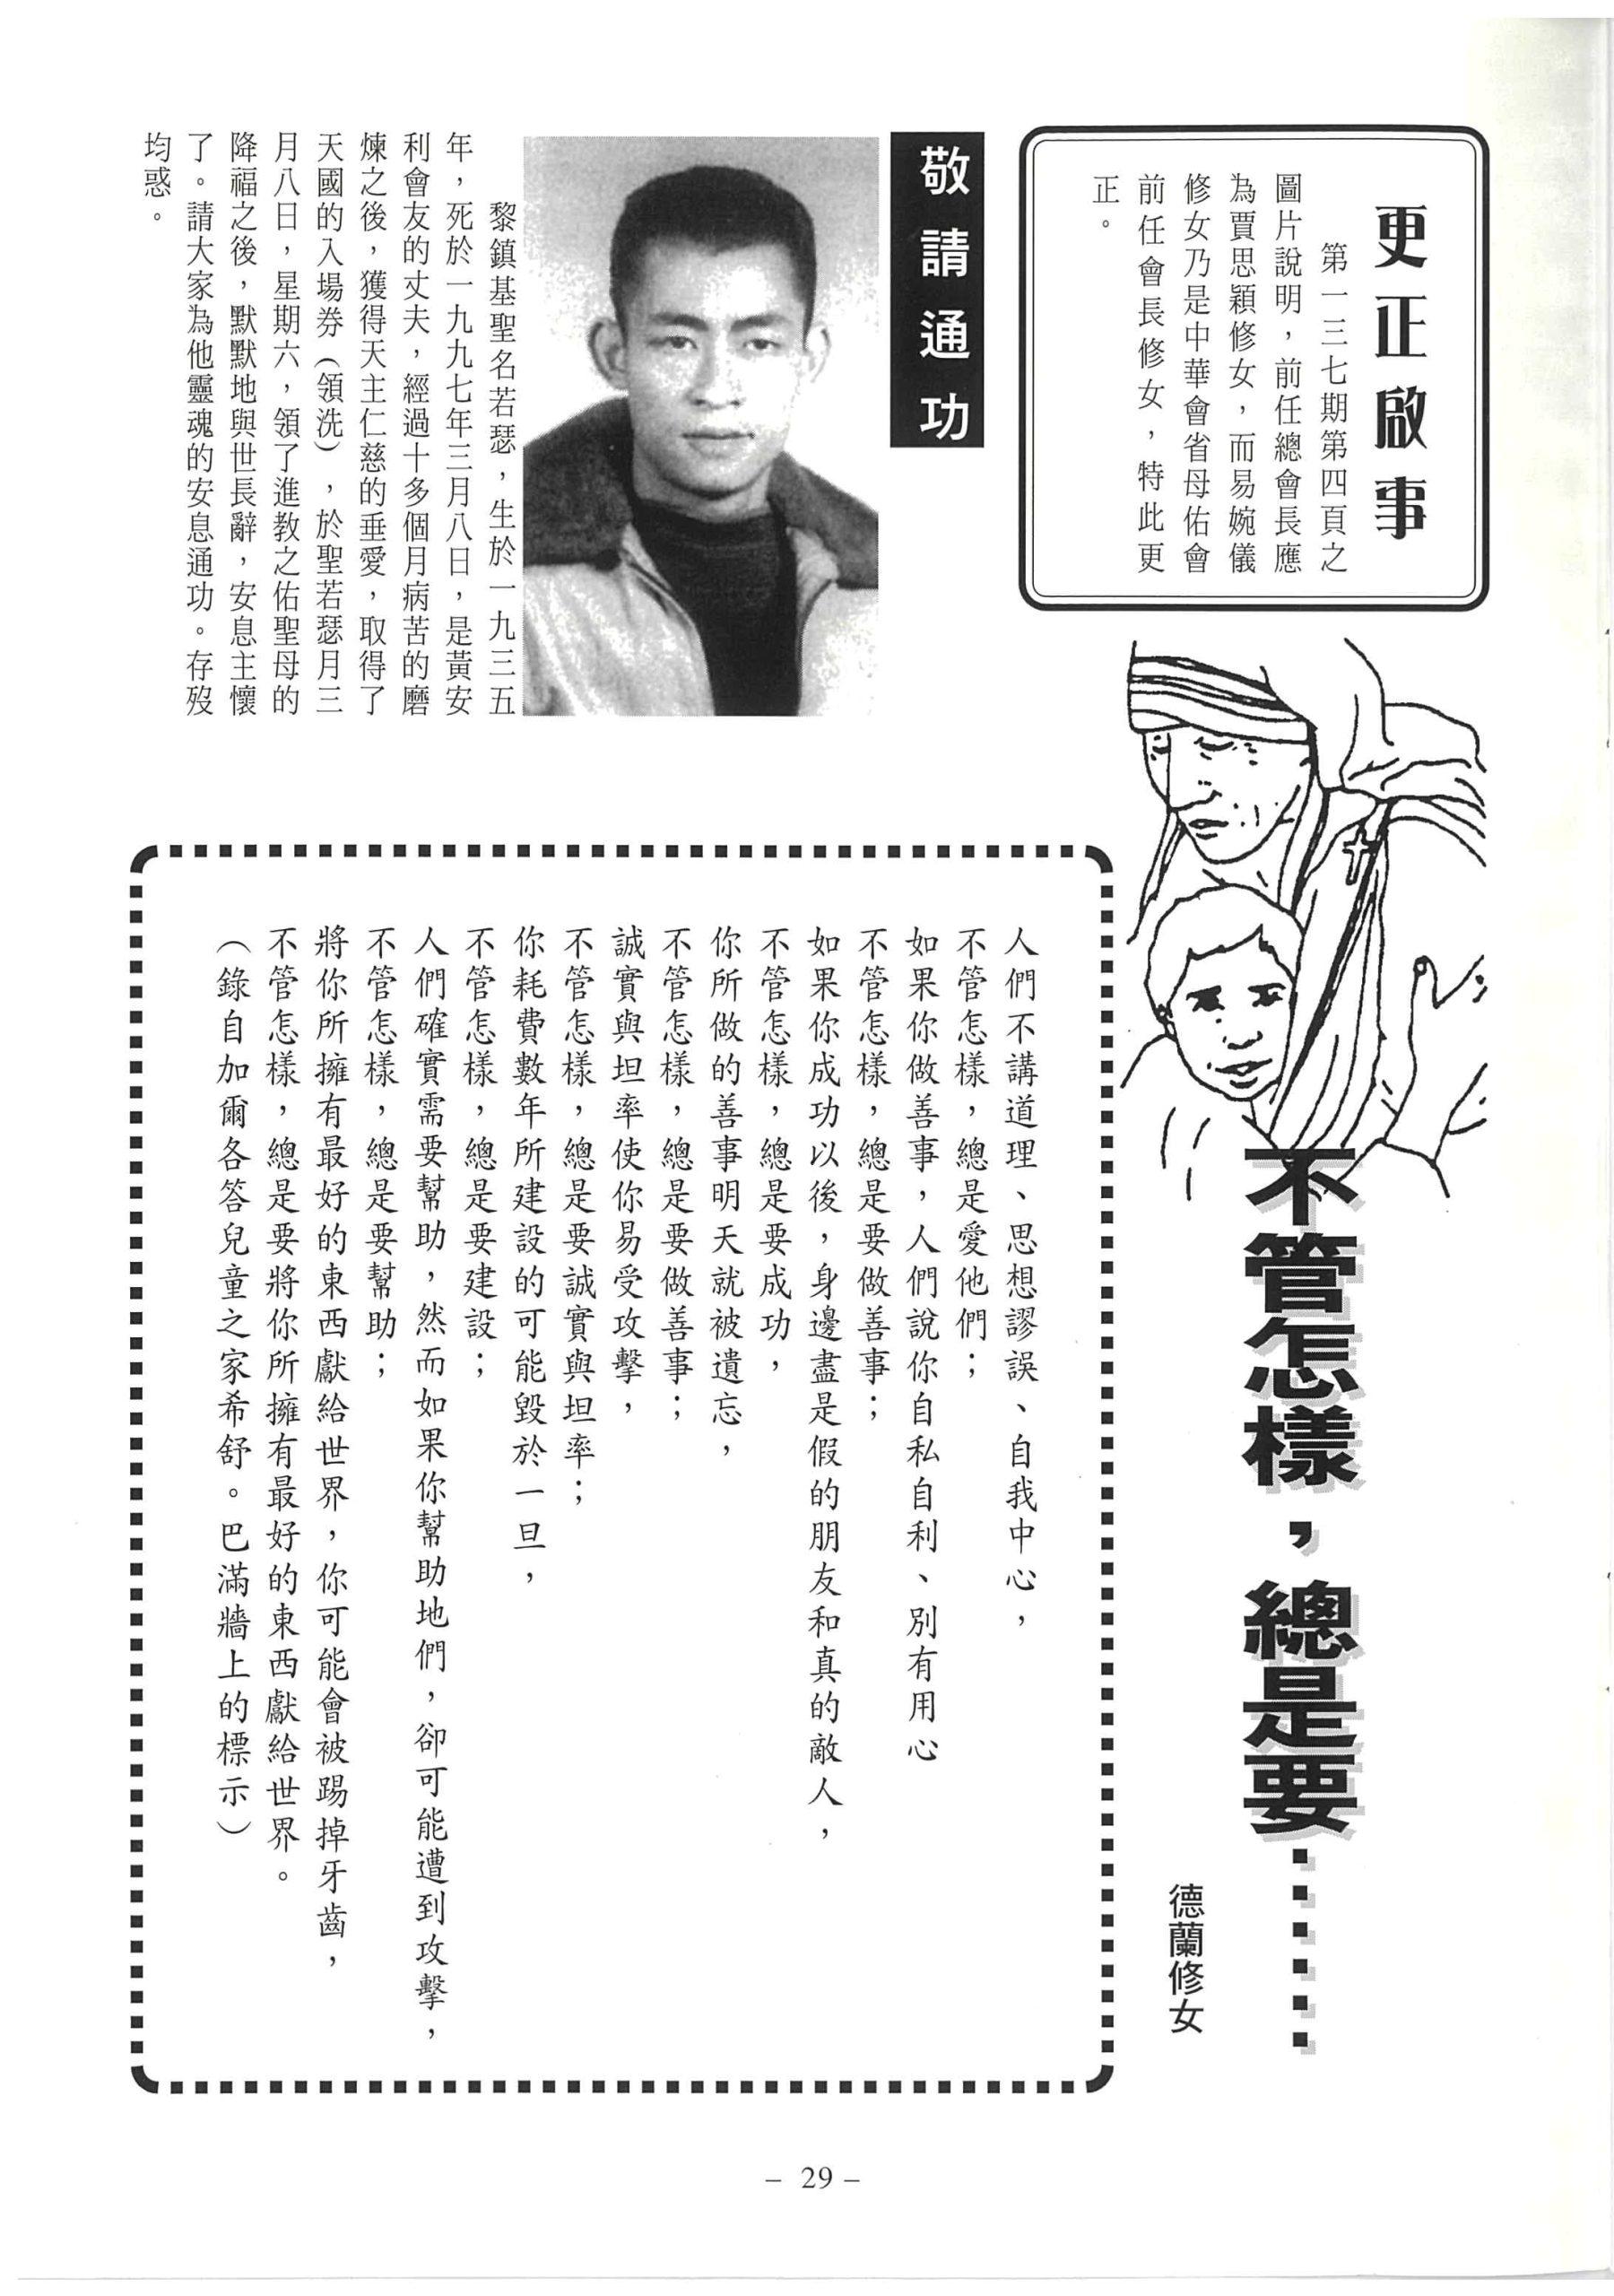 更正啟事
第一三七期第四頁之
圖片說明，前任總會長應
為賈思穎修女，而易婉儀
修女乃是中華會省母佑會
前任會長修女，特此更
正。
敬請通功
黎鎮基聖名若瑟，生於一九三五
年，死於一九九七年三月八日，是黃安
利會友的丈夫，經過十多個月病苦的磨
煉之後，獲得天主仁慈的垂愛，取得了
天國的入場券（領洗），於聖若瑟月三
月八日，星期六，領了進教之佑聖母的
降福之後，默默地與世長辭，安息主懷
了。請大家為他靈魂的安息通功。存歿
均惑。
不管怎樣，總是要……
德蘭修女
人們不講道理、思想謬誤、自我中心，
不管怎樣，總是愛他們；
如果你做善事，人們說你自私自利、別有用心
不管怎樣，總是要做善事；
如果你成功以後，身邊盡是假的朋友和真的敵人，
不管怎樣，總是要成功，
你所做的善事明天就被遺忘，
不管怎樣，總是要做善事；
誠實與坦率使你易受攻擊，
不管怎樣，總是要誠實與坦率；
你耗費數年所建設的可能毀於一旦，
不管怎樣，總是要建設；
人們確實需要幫助，然而如果你幫助地們，卻可能遭到攻擊，
不管怎樣，總是要幫助；
將你所擁有最好的東西獻給世界，你可能會被踢掉牙齒，
不管怎樣，總是要將你所擁有最好的東西獻給世界。
（錄自加爾各答兒童之家希舒。巴滿牆上的標示）
– 29 –